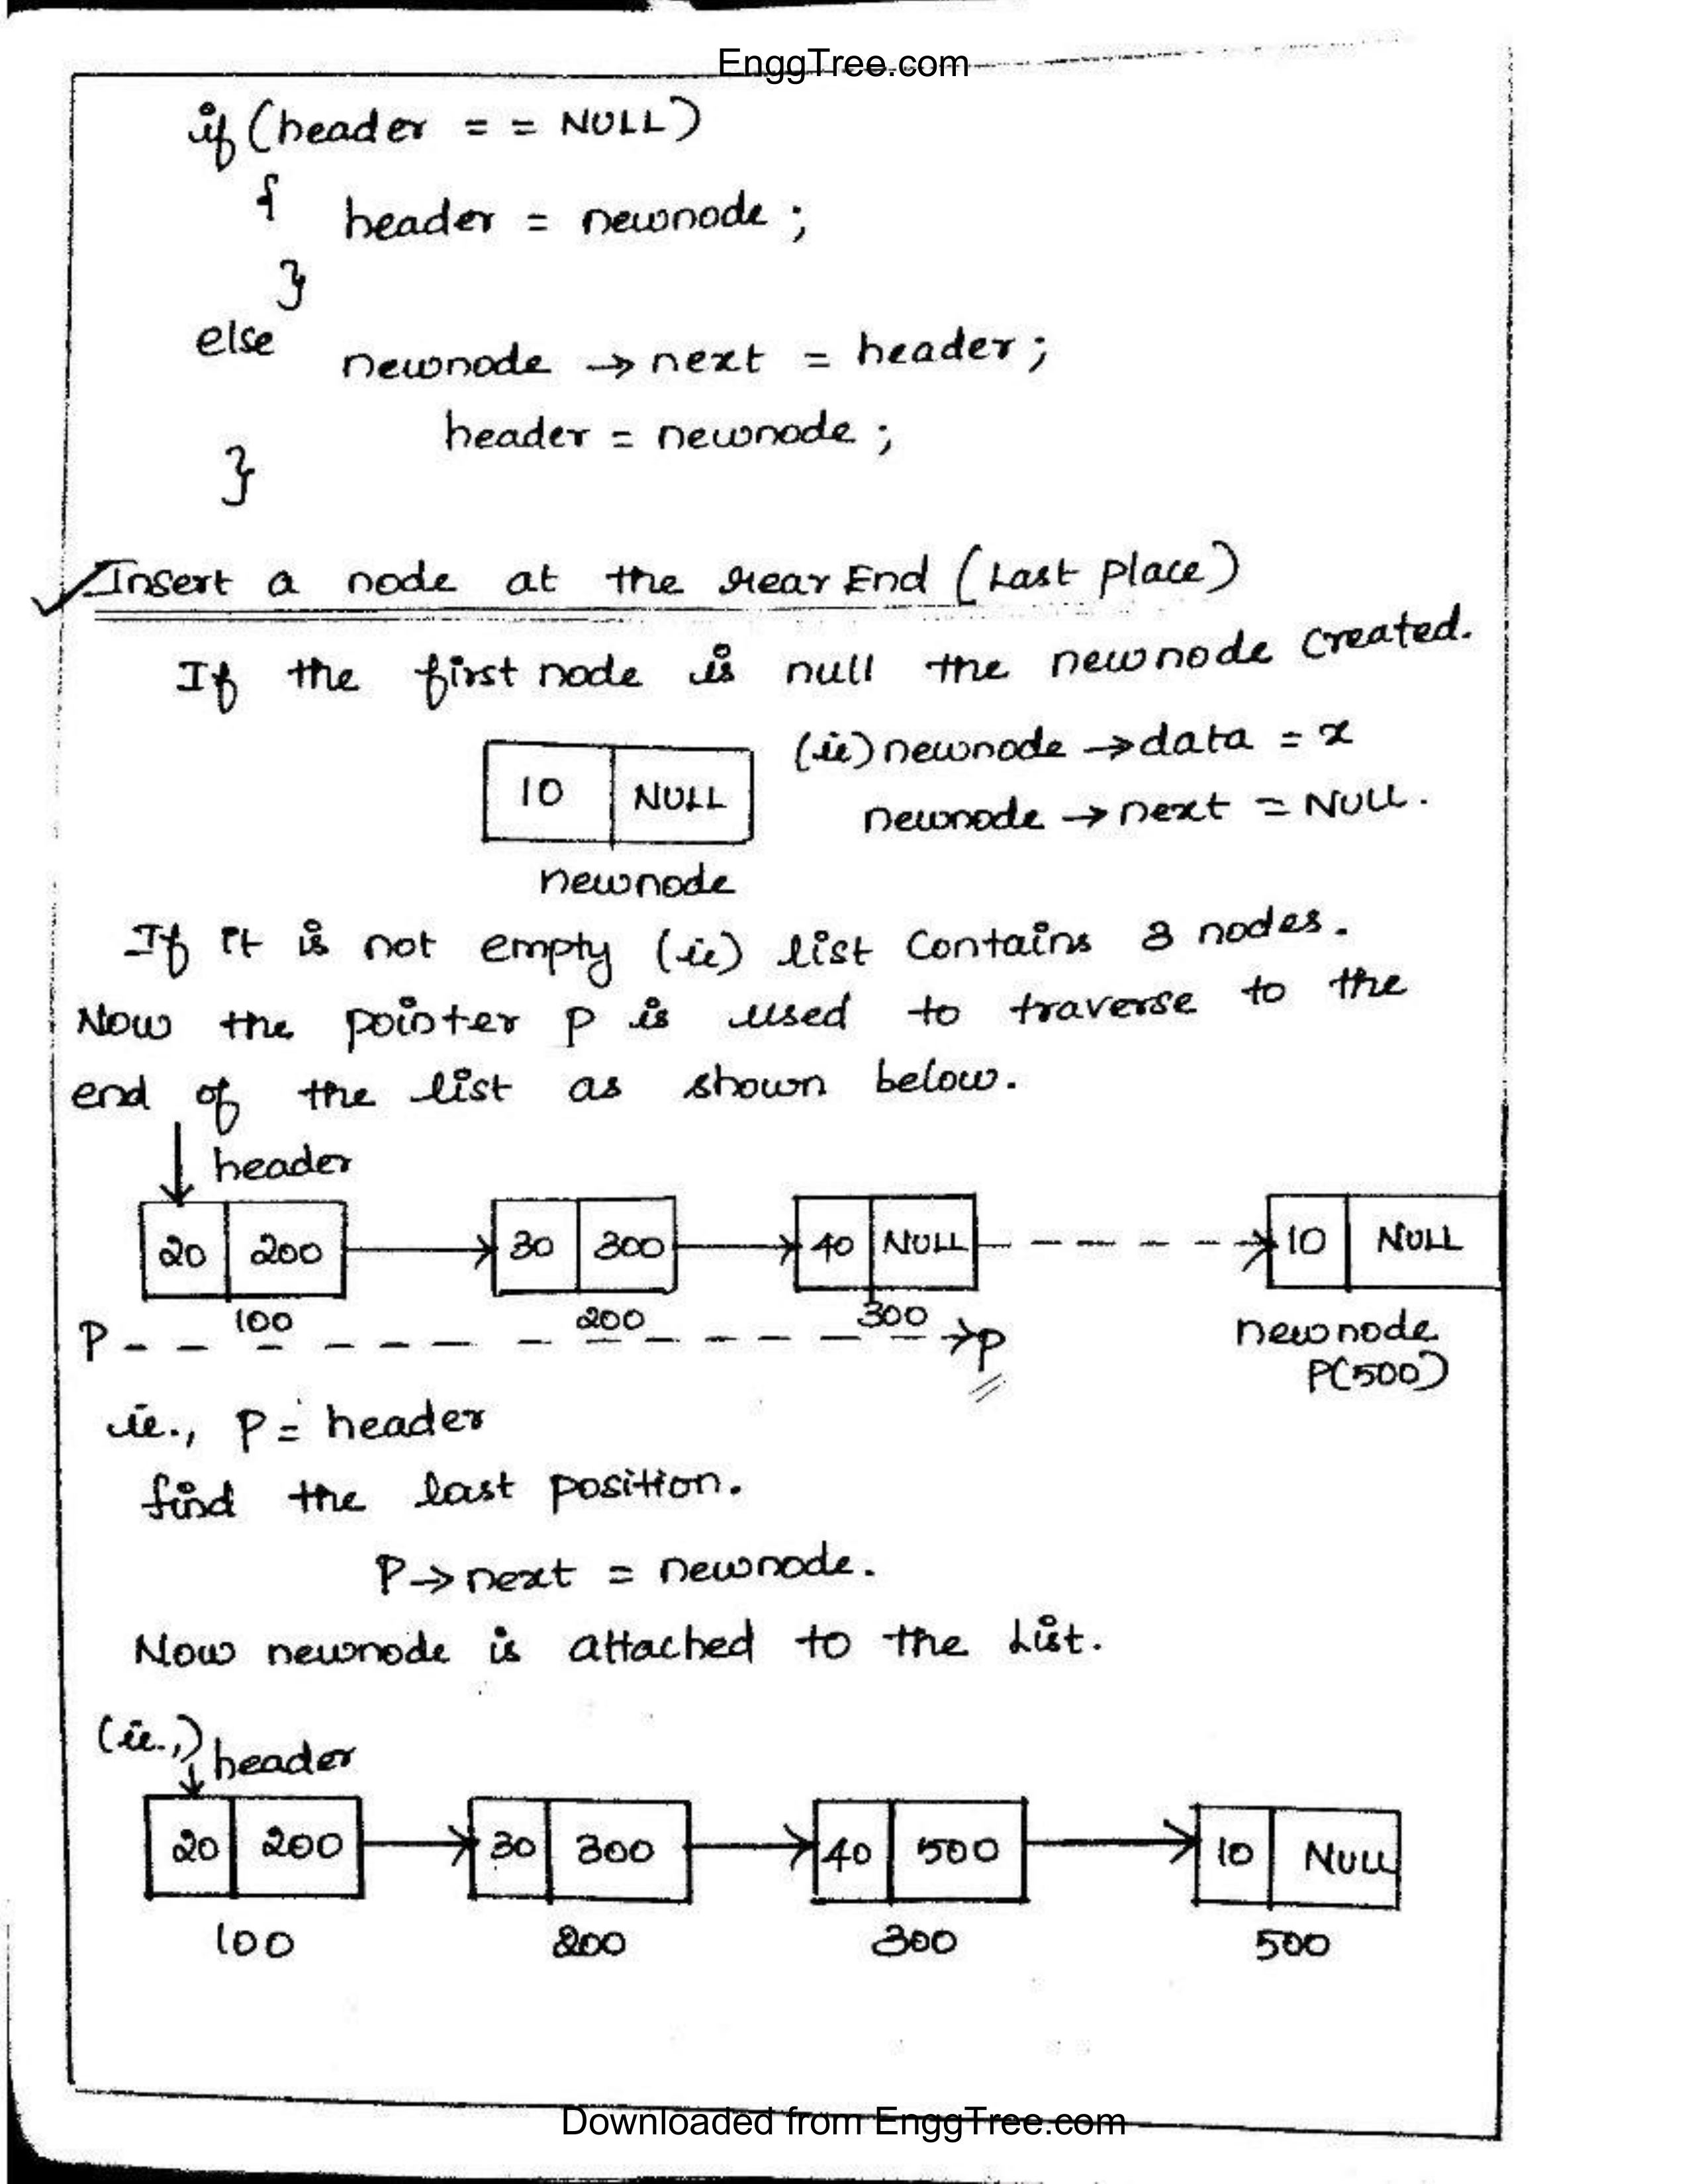 EnggTree.com
if (header = = NULL)
{ header = newnode ;
}
else
newnode → next = header ;
header = newnode ;
}
Insert a node at the rear End (Last place)
If the first node is null the newnode created.
(ie) newnode → data = x
10 NULL
newnode → next = NULL.
newnode
If it is not empty (ie) list contains 3 nodes.
Now the pointer p is used to traverse to the
end of the list as shown below.
header
20 200 30 300 40 NULL 10 NULL
100 200 300
P p newnode
P(500)
ie., P = header
find the last position.
P → next = newnode.
Now newnode is attached to the List.
(ie.,) header
20 200 30 300 40 500 10 NULL
100 200 300 500
Downloaded from EnggTree.com